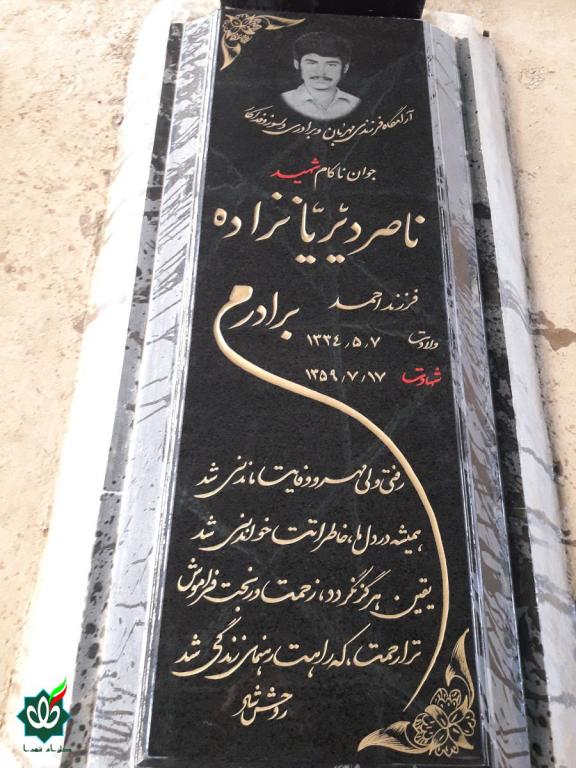 آرامگاه فرزندی مهربان و برادری دلسوز و فداکار
جوان ناکام شهید
ناصر دیریانزاده
فرزند احمد
برادرم
ولادت ۱۳۳۴٫۵٫۷
شهادت ۱۳۵۹٫۷٫۱۷
رفتی ولی مهر و وفایت ماندنی شد
همیشه در دل ما، خاطراتت خواندنی شد
یقین هرگز نگردد، زحمت و رنجت فراموش
ترا رحمت، که راهت رهنمای زندگی شد
روحش شاد